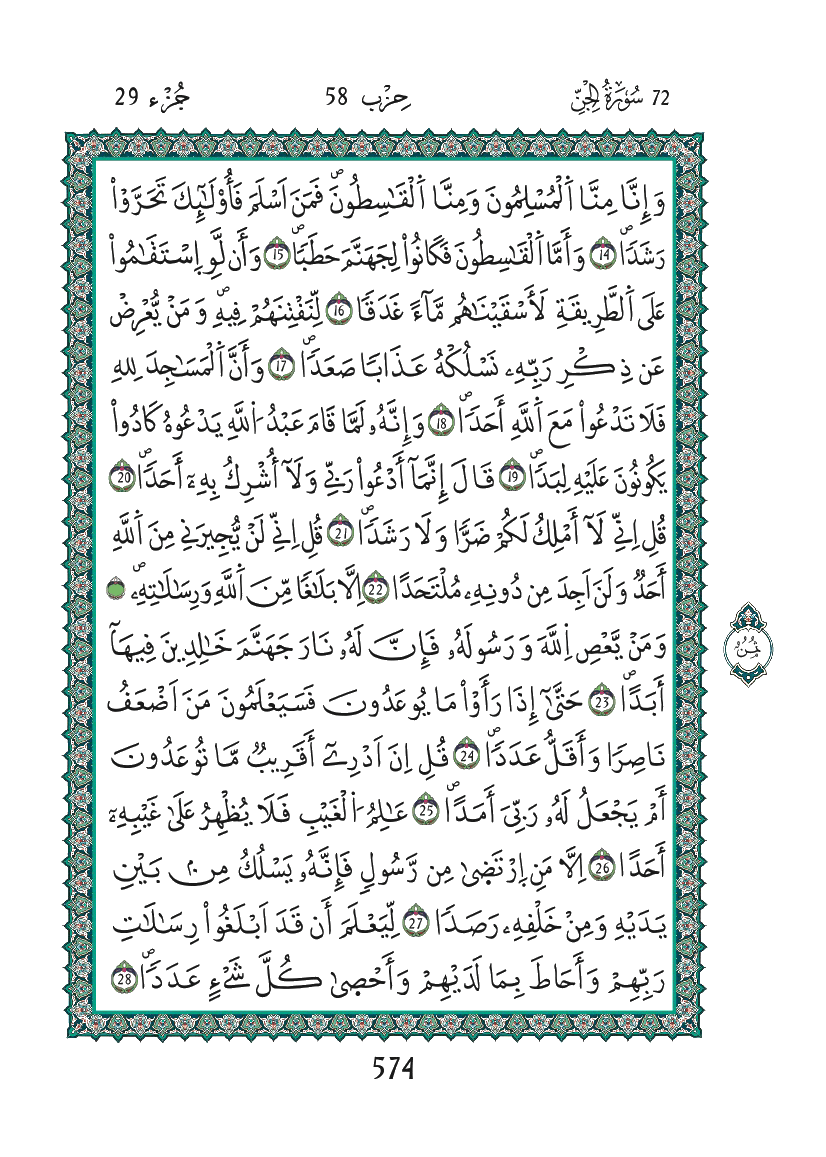 72 سُورَةُ الْجِنِّ
حِزْب 58
جُزْء 29
وَإِنَّا مِنَّا اَ۬لْمُسْلِمُونَ وَمِنَّا اَ۬لْقَٰسِطُونَۖ فَمَنَ اَسْلَمَ فَأُوْلَٰٓئِكَ تَحَرَّوْاْ
رَشَداٗۖ 14 وَأَمَّا اَ۬لْقَٰسِطُونَ فَكَانُواْ لِجَهَنَّمَ حَطَباٗۖ 15 وَأَن لَّوِ اِ۪سْتَقَٰمُواْ
عَلَى اَ۬لطَّرِيقَةِ لَأَسْقَيْنَٰهُم مَّآءً غَدَقاٗ 16 لِّنَفْتِنَهُمْ فِيهِۖ وَمَنْ يُّعْرِضْ
عَن ذِكْرِ رَبِّهِۦ نَسْلُكْهُ عَذَاباٗ صَعَداٗۖ 17 وَأَنَّ اَ۬لْمَسَٰجِدَ لِلهِ
فَلَا تَدْعُواْ مَعَ اَ۬للَّهِ أَحَداٗۖ 18 وَإِنَّهُۥ لَمَّا قَامَ عَبْدُ اُ۬للَّهِ يَدْعُوهُ كَادُواْ
يَكُونُونَ عَلَيْهِ لِبَداٗۖ 19 قَالَ إِنَّمَآ أَدْعُواْ رَبِّے وَلَآ أُشْرِكُ بِهِۦٓ أَحَداٗۖ 20
قُلِ اِنِّے لَآ أَمْلِكُ لَكُمْ ضَرّاٗ وَلَا رَشَداٗۖ 21 قُلِ اِنِّے لَنْ يُّجِيرَنِے مِنَ اَ۬للَّهِ
أَحَدٞ وَلَنَ اَجِدَ مِن دُونِهِۦ مُلْتَحَداً 22 اِلَّا بَلَٰغاٗ مِّنَ اَ۬للَّهِ وَرِسَٰلَٰتِهِۦۖ
وَمَنْ يَّعْصِ اِ۬للَّهَ وَرَسُولَهُۥ فَإِنَّ لَهُۥ نَارَ جَهَنَّمَ خَٰلِدِينَ فِيهَآ
أَبَداٗۖ 23 حَتَّىٰٓ إِذَا رَأَوْاْ مَا يُوعَدُونَ فَسَيَعْلَمُونَ مَنَ اَضْعَفُ
نَاصِراٗ وَأَقَلُّ عَدَداٗۖ 24 قُلِ اِنَ اَدْرِےٓ أَقَرِيبٞ مَّا تُوعَدُونَ
أَمْ يَجْعَلُ لَهُۥ رَبِّيَ أَمَداًۖ 25 عَٰلِمُ اُ۬لْغَيْبِ فَلَا يُظْهِرُ عَلَىٰ غَيْبِهِۦٓ
أَحَداً 26 اِلَّا مَنِ اِ۪رْتَضَىٰ مِن رَّسُولٖ فَإِنَّهُۥ يَسْلُكُ مِنۢ بَيْنِ
يَدَيْهِ وَمِنْ خَلْفِهِۦ رَصَداٗ 27 لِّيَعْلَمَ أَن قَدَ اَبْلَغُواْ رِسَٰلَٰتِ
رَبِّهِمْ وَأَحَاطَ بِمَا لَدَيْهِمْ وَأَحْصَىٰ كُلَّ شَےْءٍ عَدَداٗۖ 28
ثُمُن
574